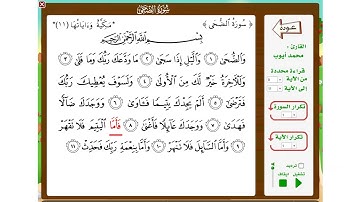 سُورَةُ الضُّحَى
﴿ سُورَةُ الضُّحَى ﴾ "مَكِّيَّة وَءَايَاتُهَا (١١)"
بِسْمِ اللَّهِ الرَّحْمَٰنِ الرَّحِيمِ
وَالضُّحَىٰ ١ وَاللَّيْلِ إِذَا سَجَىٰ ٢ مَا وَدَّعَكَ رَبُّكَ وَمَا قَلَىٰ ٣
وَلَلْآخِرَةُ خَيْرٌ لَّكَ مِنَ الْأُولَىٰ ٤ وَلَسَوْفَ يُعْطِيكَ رَبُّكَ
فَتَرْضَىٰ ٥ أَلَمْ يَجِدْكَ يَتِيمًا فَـَٔاوَىٰ ٦ وَوَجَدَكَ ضَآلًّا
فَهَدَىٰ ٧ وَوَجَدَكَ عَآئِلًا فَأَغْنَىٰ ٨ فَأَمَّا الْيَتِيمَ فَلَا تَقْهَرْ
٩ وَأَمَّا السَّآئِلَ فَلَا تَنْهَرْ ١٠ وَأَمَّا بِنِعْمَةِ رَبِّكَ فَحَدِّثْ ١١
عودة
القارئ :
محمد أيوب
قراءة محددة
من الآية
إلى الآية
تكرار السورة
تكرار الآية
ترديد
تشغيل
ايقاف